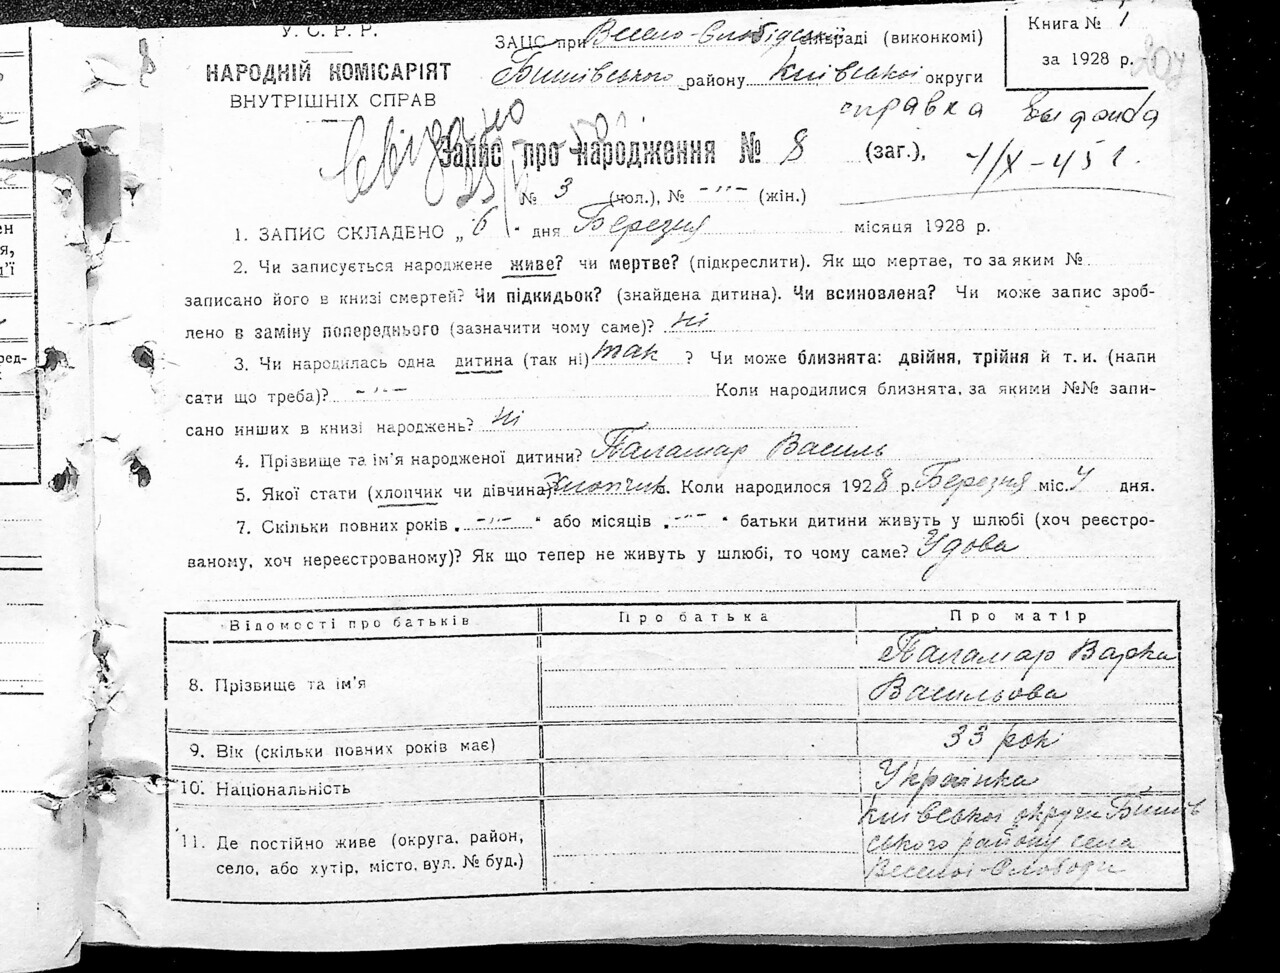 У. С. Р. Р.
НАРОДНІЙ КОМІСАРІЯТ
ВНУТРІШНІХ СПРАВ
ЗАЦС при Весело-Слобідській сільраді (виконкомі)
Бишівського району Київської округи
Книга № 1
за 1928 р.
207
справка выдана
1/X-45 г.
Звірено
Запис про народження № 8 (заг.),
№ 3 (чол.), № -"- (жін.)
1. ЗАПИС СКЛАДЕНО „ 6 " дня Березня місяця 1928 р.
2. Чи записується народжене живе? чи мертве? (підкреслити). Як що мертве, то за яким №
записано його в книзі смертей? Чи підкидьок? (знайдена дитина). Чи всиновлена? Чи може запис зроб-
лено в заміну попереднього (зазначити чому саме)? Ні
3. Чи народилась одна дитина (так ні) так ? Чи може близнята: двійня, трійня й т. и. (напи
сати що треба)? -"- Коли народилися близнята, за якими №№ запи-
сано инших в книзі народжень? Ні
4. Прізвище та ім'я народженої дитини? Паламар Василь
5. Якої стати (хлопчик чи дівчина) Хлопчик. Коли народилося 1928 р. Березня міс. 4 дня.
7. Скільки повних років „ -"- " або місяців „ -"- " батьки дитини живуть у шлюбі (хоч реєстро-
ваному, хоч нереєстрованому)? Як що тепер не живуть у шлюбі, то чому саме? Удова
Відомості про батьків Про батька Про матір
8. Прізвище та ім'я Паламар Варка
Васильова
9. Вік (скільки повних років має) 33 рокі
10. Національність Українка
11. Де постійно живе (округа, район,
село, або хутір, місто, вул. № буд.)
Київської округи Бишів
ського району села
Веселої-Слободи